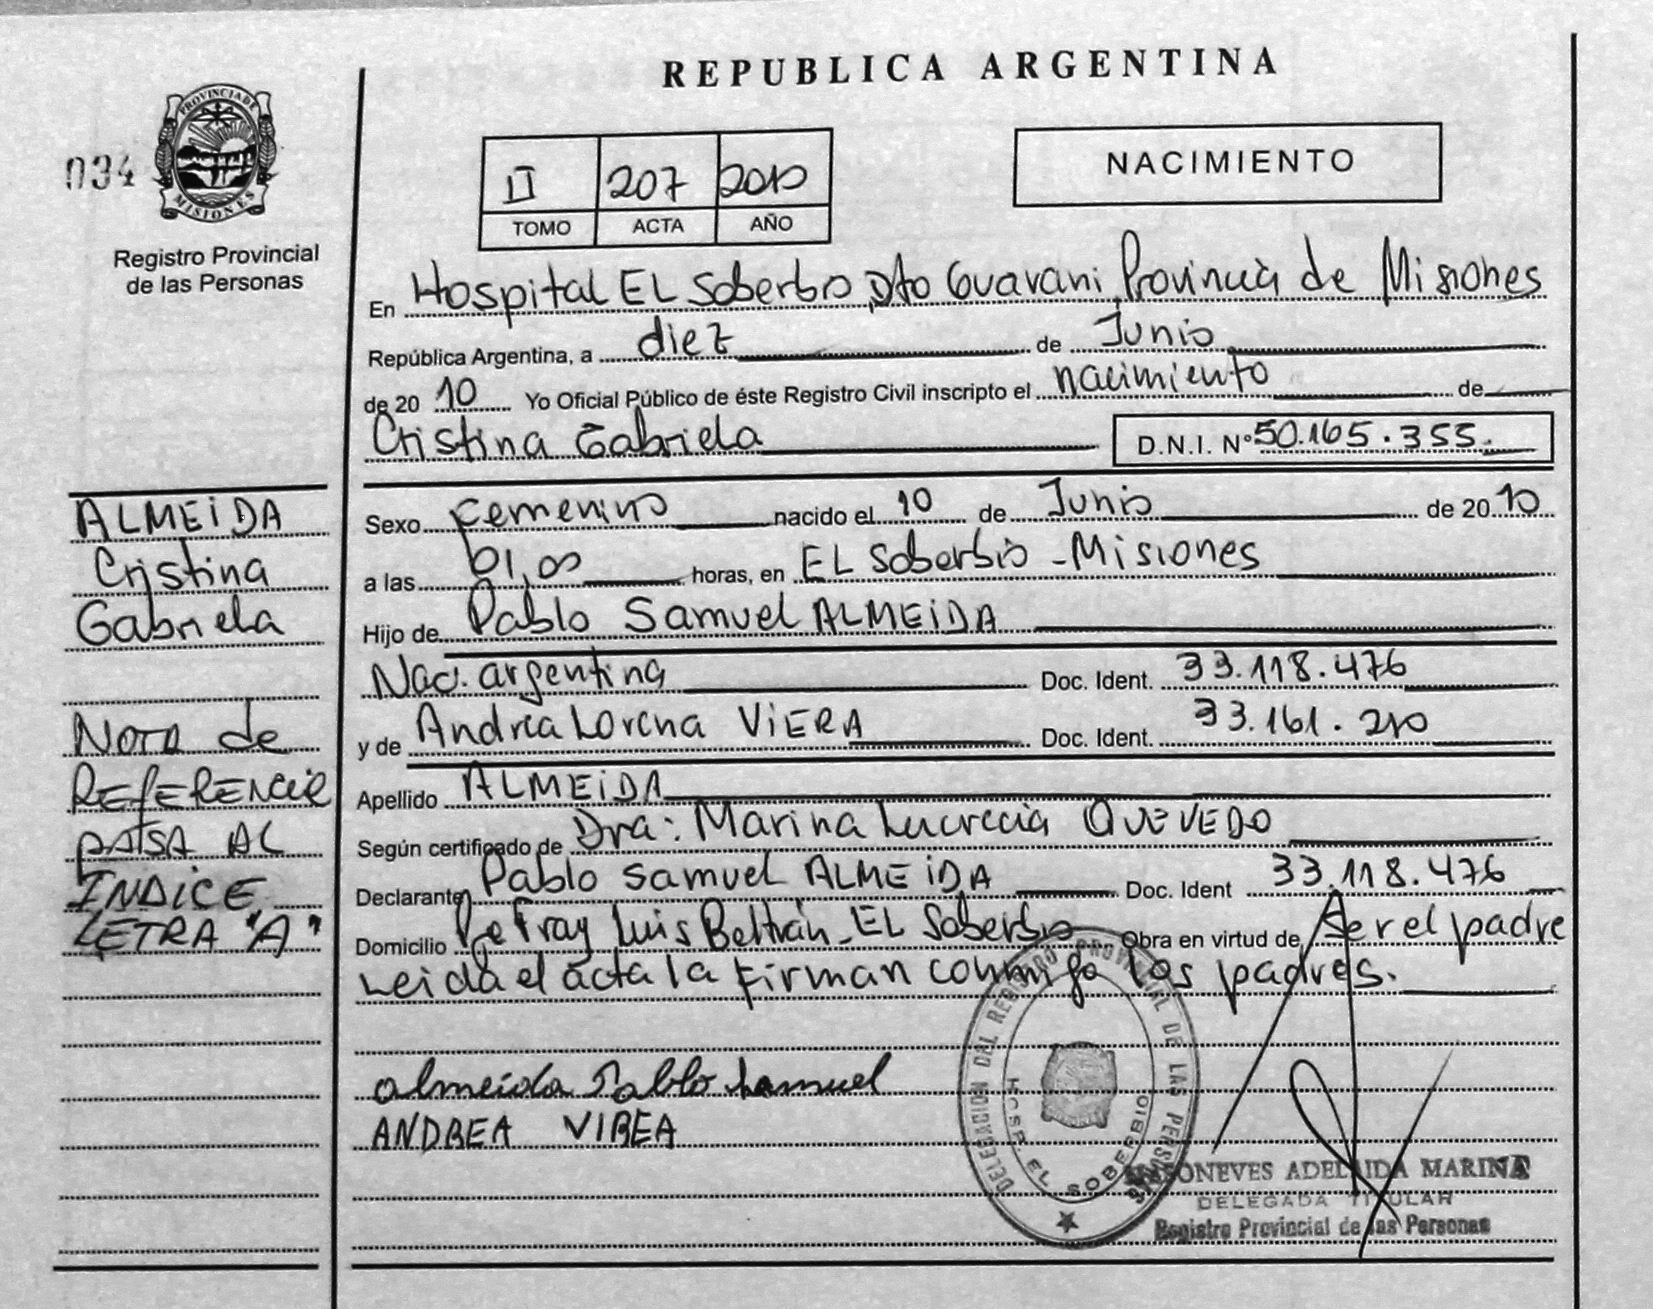 REPUBLICA ARGENTINA
034
PROVINCIA DE
MISIONES
Registro Provincial
de las Personas
II 207 2010
TOMO ACTA AÑO
NACIMIENTO
En Hospital EL Soberbio Dto Guarani Provincia de Misiones
República Argentina, a diez de Junio
de 20 10 Yo Oficial Público de éste Registro Civil inscripto el nacimiento de
Cristina Gabriela D.N.I. Nº 50.165.355.
ALMEIDA
Cristina
Gabriela
Nota de
REFERENCIA
PASA AL
INDICE
LETRA "A"
Sexo Femenino nacido el 10 de Junio de 20 10
a las 01,00 horas, en EL Soberbio - Misiones
Hijo de Pablo Samuel ALMEIDA
Nac. argentina Doc. Ident. 33.118.476
y de Andrea Lorena VIERA Doc. Ident. 33.161.210
Apellido ALMEIDA
Según certificado de Dra: Marina Lucrecia QUEVEDO
Declarante Pablo Samuel ALMEIDA Doc. Ident 33.118.476
Domicilio Pje Fray Luis Beltrán - EL Soberbio Obra en virtud de Ser el padre
Leida el acta la firman conmigo los padres.
almeida Pablo Samuel
ANDREA VIREA
DELEGACION DEL REGISTRO PROVINCIAL DE LAS PERSONAS
HOSP. EL SOBERBIO
ADELAIDA MARINA
DELEGADA TITULAR
Registro Provincial de las Personas